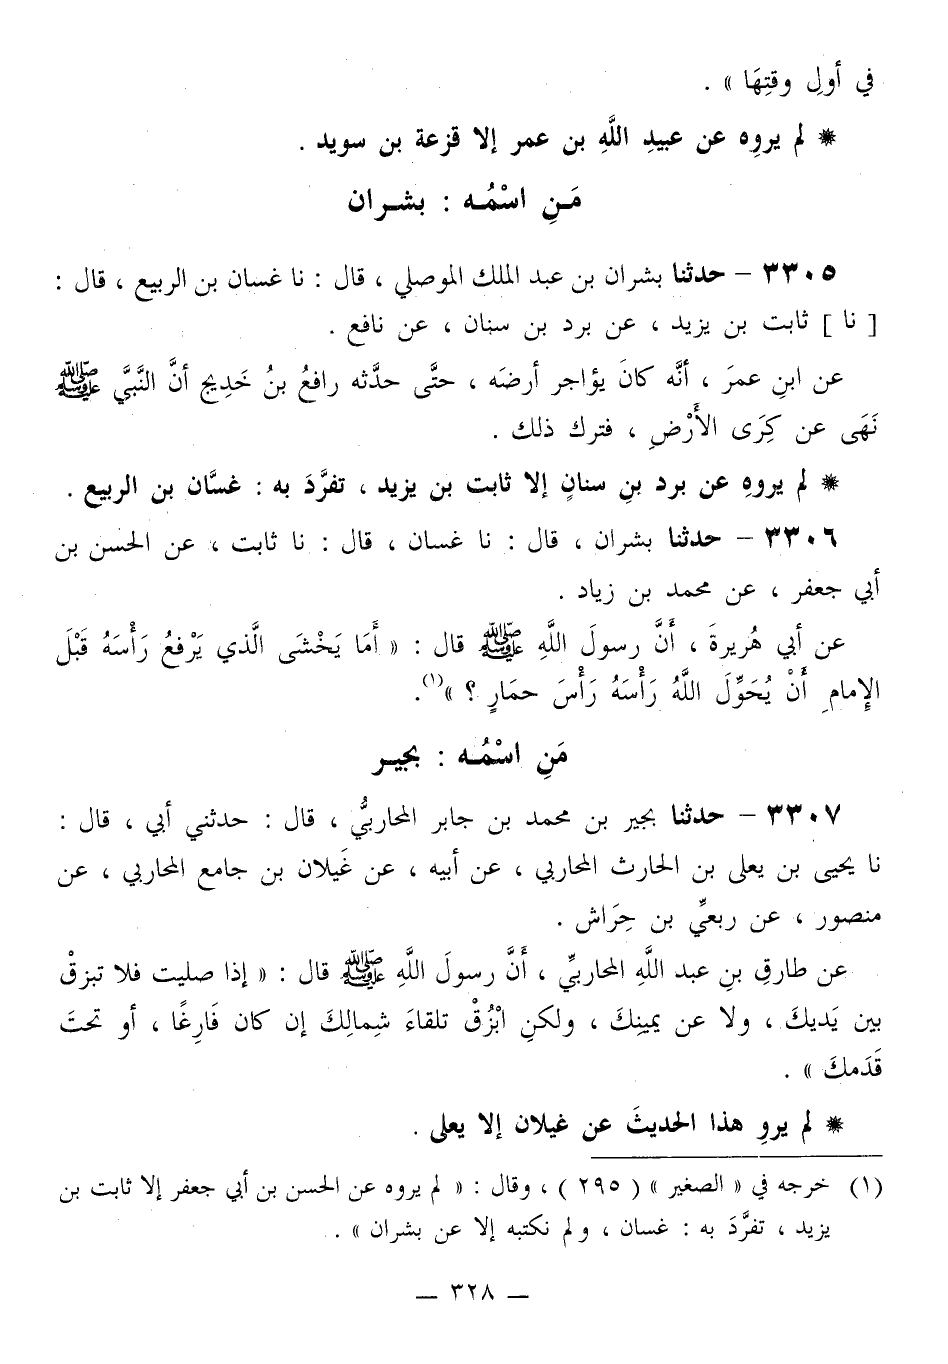 في أولِ وقتِهَا » .
* لم يروِه عن عبيدِ اللَّهِ بن عمر إلا قزعة بن سويد .
مَـنِ اسْمُـه : بشـران
٣٣٠٥ – حدثنا بشران بن عبد الملك الموصلي ، قال : نا غسان بن الربيع ، قال :
[ نا ] ثابت بن يزيد ، عن برد بن سنان ، عن نافع .
عن ابنِ عمرَ ، أنَّه كانَ يؤاجر أرضَه ، حتَّى حدَّثه رافعُ بنُ خَدِيج أنَّ النَّبيَّ ﷺ
نَهَى عن كِرَى الأَرْضِ ، فترك ذلك .
* لم يروهِ عن برد بنِ سنانٍ إلا ثابت بن يزيد ، تفرَّدَ به : غسَّان بن الربيع .
٣٣٠٦ – حدثنا بشران ، قال : نا غسان ، قال : نا ثابت ، عن الحسن بن
أبي جعفر ، عن محمد بن زياد .
عن أبي هُريرةَ ، أَنَّ رسولَ اللَّهِ ﷺ قال : « أَمَا يَخْشَى الَّذي يَرْفعُ رَأْسَهُ قَبْلَ
الإِمامِ أَنْ يُحَوِّلَ اللَّهُ رَأْسَهُ رَأْسَ حمَارٍ ؟ »(١).
مَنِ اسْمُـه : بجيـر
٣٣٠٧ – حدثنا بجير بن محمد بن جابر المحاربيُّ ، قال : حدثني أبي ، قال :
نا يحيى بن يعلى بن الحارث المحاربي ، عن أبيه ، عن غَيلان بن جامع المحاربي ، عن
منصور ، عن ربعيِّ بن حِرَاش .
عن طارقِ بنِ عبد اللَّهِ المحاربيِّ ، أَنَّ رسولَ اللَّهِ ﷺ قال : « إذا صليت فلا تبزقْ
بين يَديكَ ، ولا عن يمينِكَ ، ولكنِ ابْزُقْ تلقاءَ شِمالِكَ إن كان فَارِغًا ، أو تحتَ
قَدَمكَ » .
* لم يروِ هذا الحديثَ عن غيلان إلا يعلى .
(١) خرجه في « الصغير » ( ٢٩٥ ) ، وقال : « لم يروه عن الحسن بن أبي جعفر إلا ثابت بن
يزيد ، تفرَّدَ به : غسان ، ولم نكتبه إلا عن بشران » .
— ٣٢٨ —